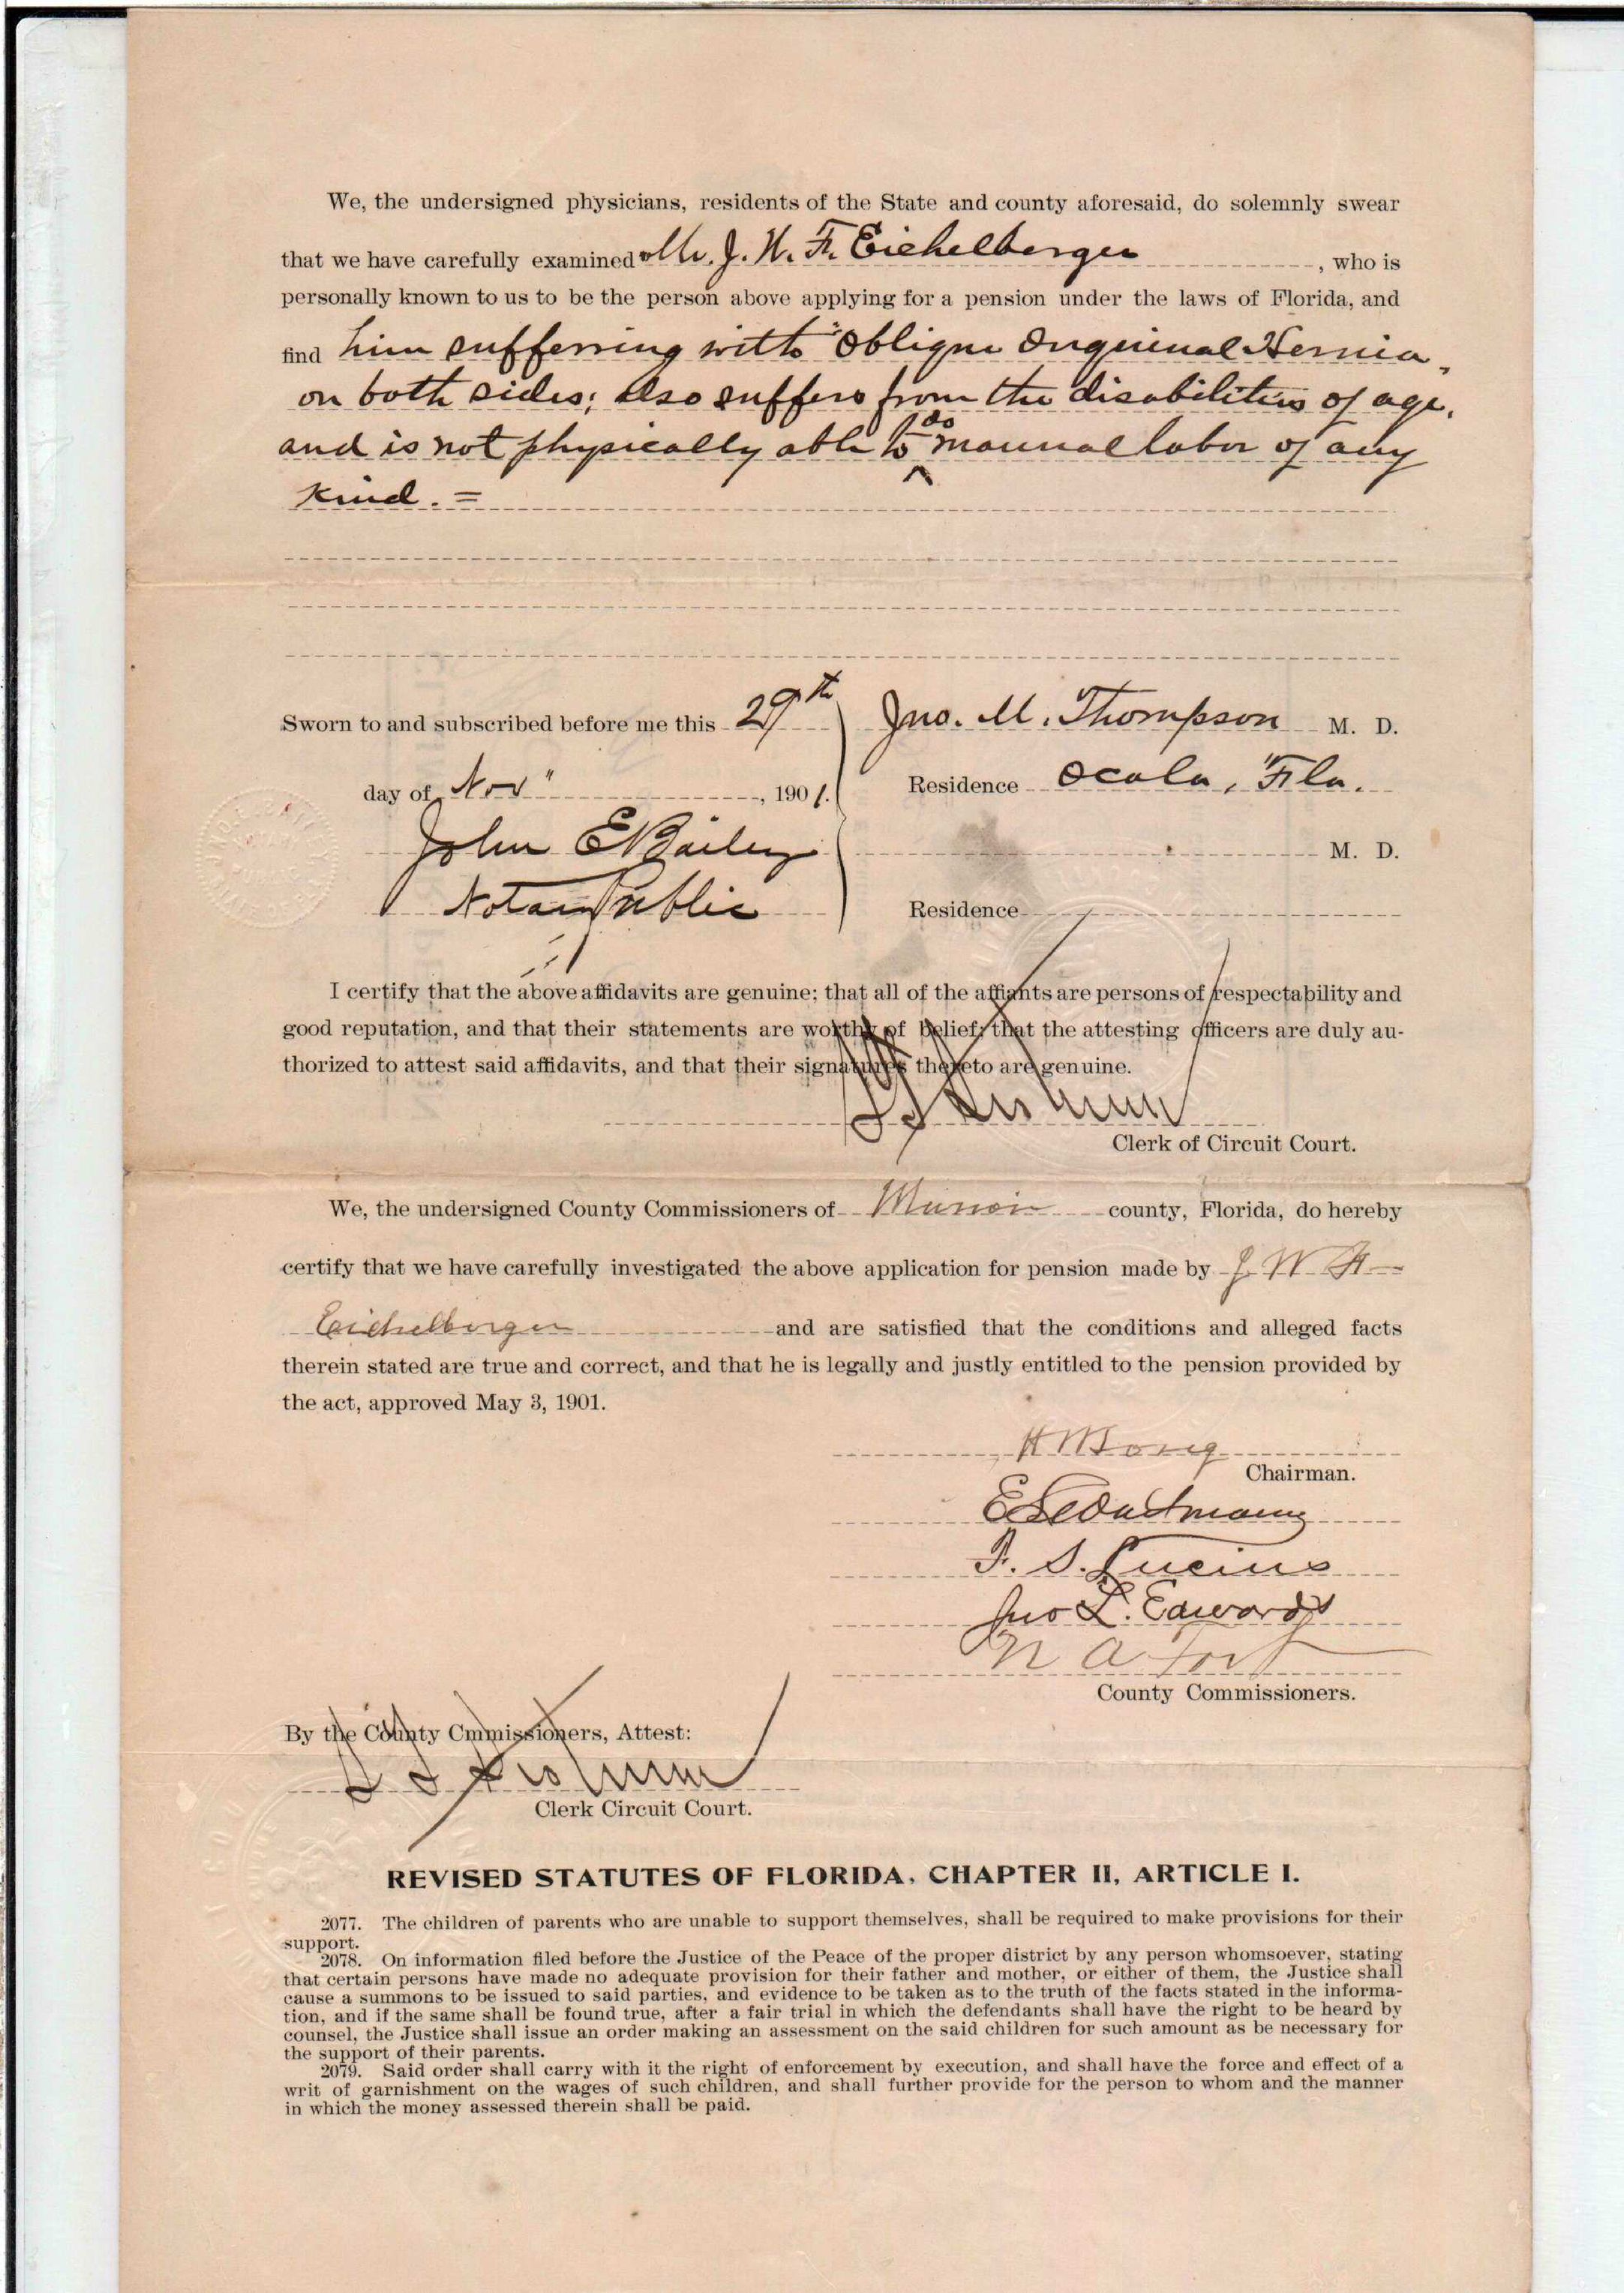 We, the undersigned physicians, residents of the State and county aforesaid, do solemnly swear
that we have carefully examined Mr. J. W. F. Eichelberger, who is
personally known to us to be the person above applying for a pension under the laws of Florida, and
find him sufferring with "Oblique Inguinal Hernia,
on both sides; also suffers from the disabilities of age,
and is not physically able to do manual labor of any
kind. =
Sworn to and subscribed before me this 29th Jno. M. Thompson M. D.
day of Nov", 1901. Residence Ocala, Fla.
John E Bailey M. D.
Notary Public Residence
I certify that the above affidavits are genuine; that all of the affiants are persons of respectability and
good reputation, and that their statements are worthy of belief; that the attesting officers are duly au-
thorized to attest said affidavits, and that their signatures thereto are genuine.
Clerk of Circuit Court.
We, the undersigned County Commissioners of Marion county, Florida, do hereby
certify that we have carefully investigated the above application for pension made by J W F
Eichelberger and are satisfied that the conditions and alleged facts
therein stated are true and correct, and that he is legally and justly entitled to the pension provided by
the act, approved May 3, 1901.
Chairman.
Jno L. Edwards
N A Fort
County Commissioners.
By the County Cmmissioners, Attest:
Clerk Circuit Court.
REVISED STATUTES OF FLORIDA, CHAPTER II, ARTICLE I.
2077. The children of parents who are unable to support themselves, shall be required to make provisions for their
support.
2078. On information filed before the Justice of the Peace of the proper district by any person whomsoever, stating
that certain persons have made no adequate provision for their father and mother, or either of them, the Justice shall
cause a summons to be issued to said parties, and evidence to be taken as to the truth of the facts stated in the informa-
tion, and if the same shall be found true, after a fair trial in which the defendants shall have the right to be heard by
counsel, the Justice shall issue an order making an assessment on the said children for such amount as be necessary for
the support of their parents.
2079. Said order shall carry with it the right of enforcement by execution, and shall have the force and effect of a
writ of garnishment on the wages of such children, and shall further provide for the person to whom and the manner
in which the money assessed therein shall be paid.